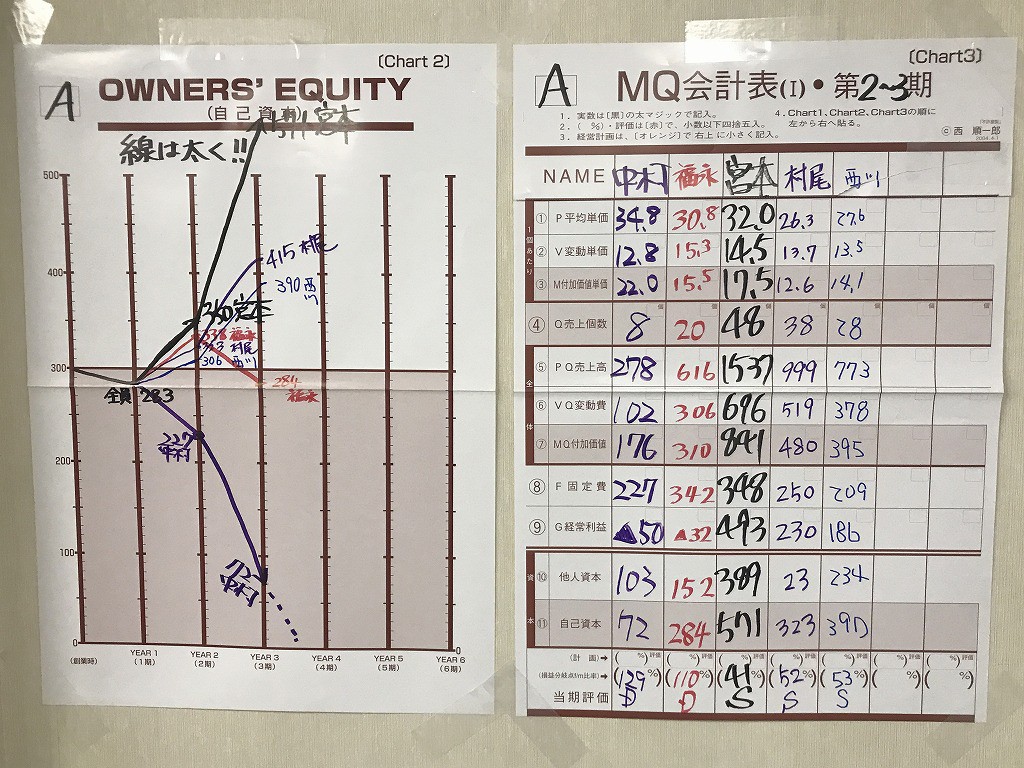 (Chart 2)
A
OWNERS' EQUITY
(自己資本)
宮本
線は太く!!
500
400
300
200
100
0
415 村尾
390 西川
360 宮本
338 福永
323 村尾
306 西川
284 福永
全員 283
227 中村
72 中村
(創業時)
YEAR 1 (1期)
YEAR 2 (2期)
YEAR 3 (3期)
YEAR 4 (4期)
YEAR 5 (5期)
YEAR 6 (6期)
(Chart3)
A
MQ会計表(I)・第2~3期
1. 実数は[黒]の太マジックで記入。
2. ( %)・評価は[赤]で、小数以下四捨五入。
3. 経営計画は、[オレンジ]で右上に小さく記入。
4. Chart1、Chart2、Chart3の順に
左から右へ貼る。
©西 順一郎
NAME 中村 福永 宮本 村尾 西川
1個あたり
① P平均単価 34.8 30.8 32.0 26.3 27.6
② V変動単価 12.8 15.3 14.5 13.7 13.5
③ M付加価値単価 22.0 15.5 17.5 12.6 14.1
④ Q売上個数 8 20 48 38 28
全体
⑤ PQ売上高 278 616 1537 999 773
⑥ VQ変動費 102 306 696 519 378
⑦ MQ付加価値 176 310 841 480 395
⑧ F固定費 227 342 348 250 209
⑨ G経常利益 ▲50 ▲32 493 230 186
資本
⑩ 他人資本 103 152 389 23 234
⑪ 自己資本 72 284 571 323 390
(計画)→ %) 評価 %) 評価 %) 評価 %) 評価 %) 評価 %) 評価 %) 評価
(損益分岐点f/m比率)→ (129%) (110%) (41%) (52%) (53%) ( %) ( %)
当期評価 D D S S S